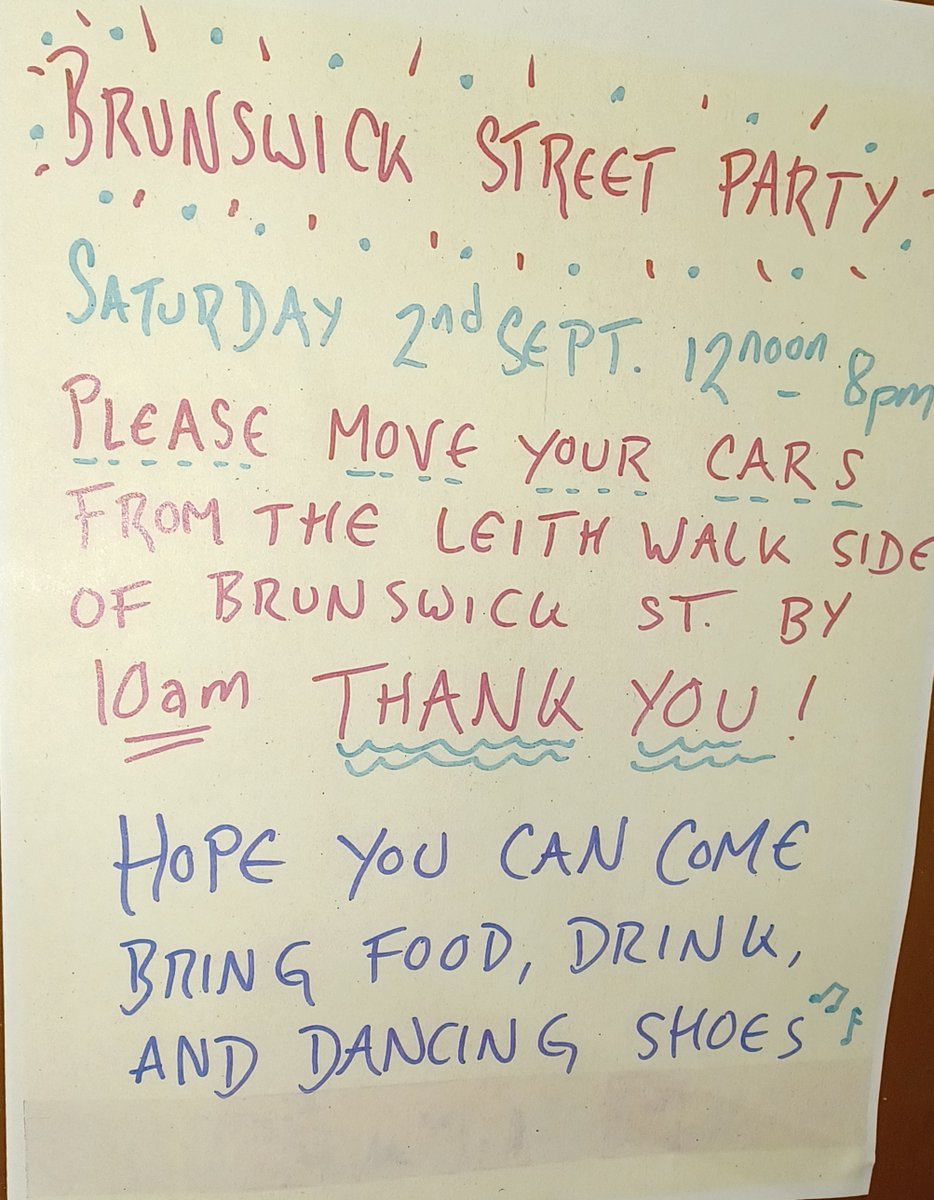 BRUNSWICK STREET PARTY
SATURDAY 2nd SEPT. 12noon - 8pm
PLEASE MOVE YOUR CARS
FROM THE LEITH WALK SIDE
OF BRUNSWICK ST. BY
10am THANK YOU!
HOPE YOU CAN COME
BRING FOOD, DRINK,
AND DANCING SHOES